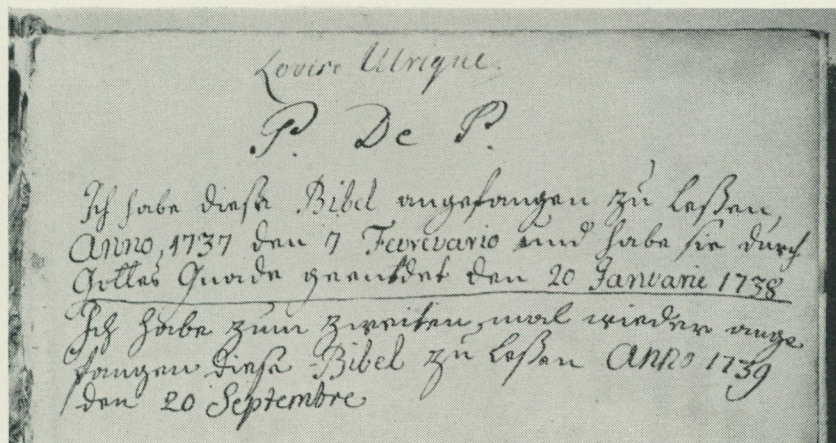 Lovise Ulrique.
P. De P.
Ich habe diese Bibel angefangen zu leßen,
Anno, 1737 den 7 Fevrevario und habe sie durch
Gottes Gnade geentdet den 20 Janvarie 1738
Ich habe zum zweiten mal wieder ange
fangen diese Bibel zu leßen Anno 1739
den 20 Septembre